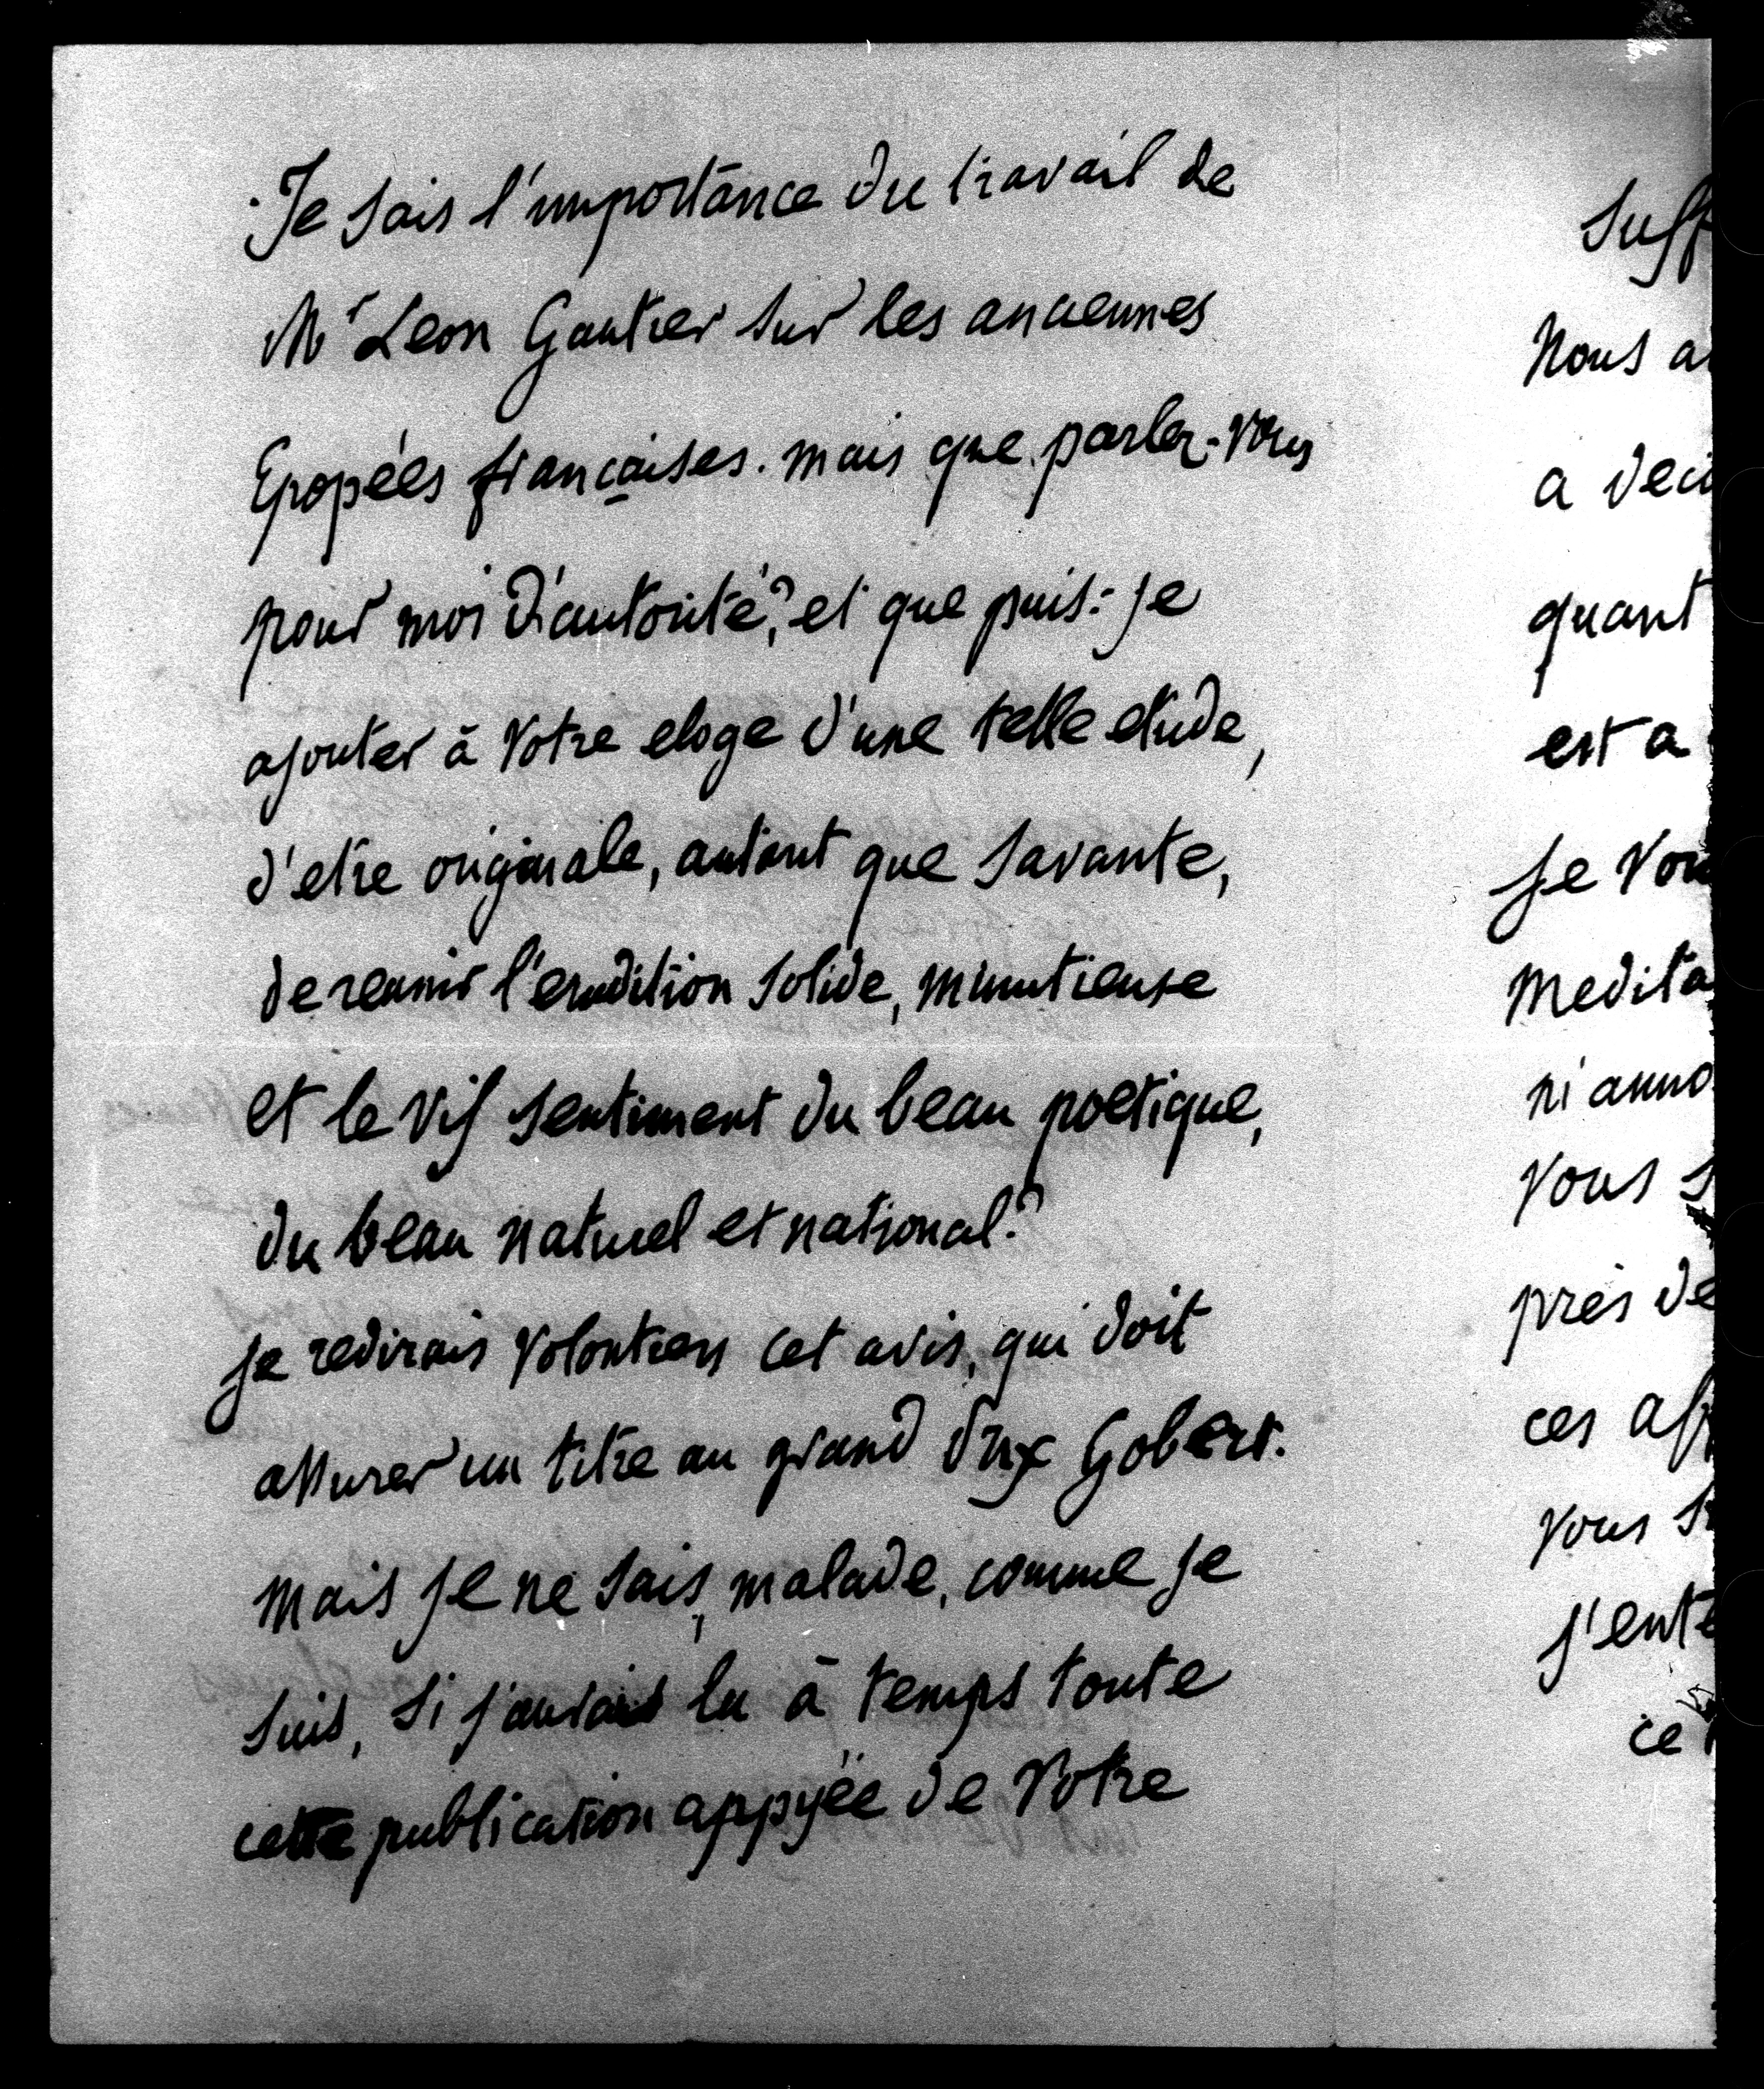 Je sais l'importance du travail de
Mr Leon Gautier sur les anciennes
Epopées françaises. mais que parlez-vous
pour moi d'autorité? et que puis-je
ajouter à votre eloge d'une telle etude,
d'etre originale, autant que savante,
de reunir l'erudition solide, minutieuse
et le vif sentiment du beau poetique,
du beau naturel et national?
je redirais volontiers cet avis, qui doit
assurer un titre au grand Prix Gobert.
mais je ne sais, malade, comme je
suis, si j'aurais lu à temps toute
cette publication appyée de votre
suff
nous a
a deci
quant
est a
je vou
medita
ni anno
vous s
près de
ces aff
vous s
j'ente
ce